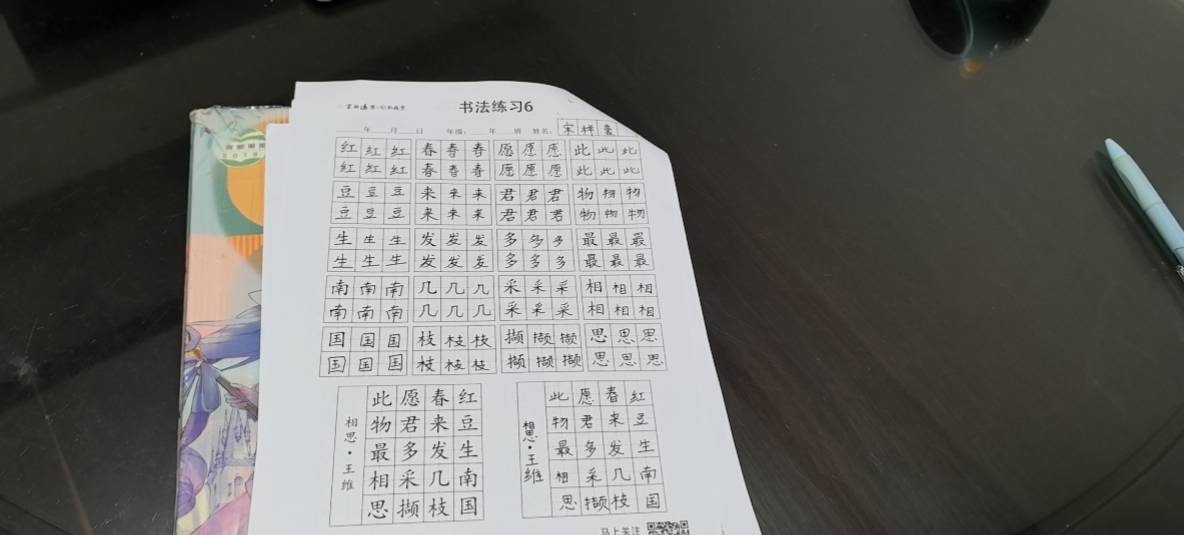 书法练习6
年 月 日 年级: 年 班 姓名: 宋梓
红 红 红 春 春 春 愿 愿 愿 此 此 此
红 红 红 春 春 春 愿 愿 愿 此 此 此
豆 豆 豆 来 来 来 君 君 君 物 物 物
豆 豆 豆 来 来 来 君 君 君 物 物 物
生 生 生 发 发 发 多 多 多 最 最 最
生 生 生 发 发 发 多 多 多 最 最 最
南 南 南 几 几 几 采 采 采 相 相 相
南 南 南 几 几 几 采 采 采 相 相 相
国 国 国 枝 枝 枝 撷 撷 撷 思 思 思
国 国 国 枝 枝 枝 撷 撷 撷 思 思 思
红豆生南国
春来发几枝
愿君多采撷
此物最相思
相思·王维
红豆生南国
春来发几枝
愿君多采撷
此物最相思
相思·王维
马上关注